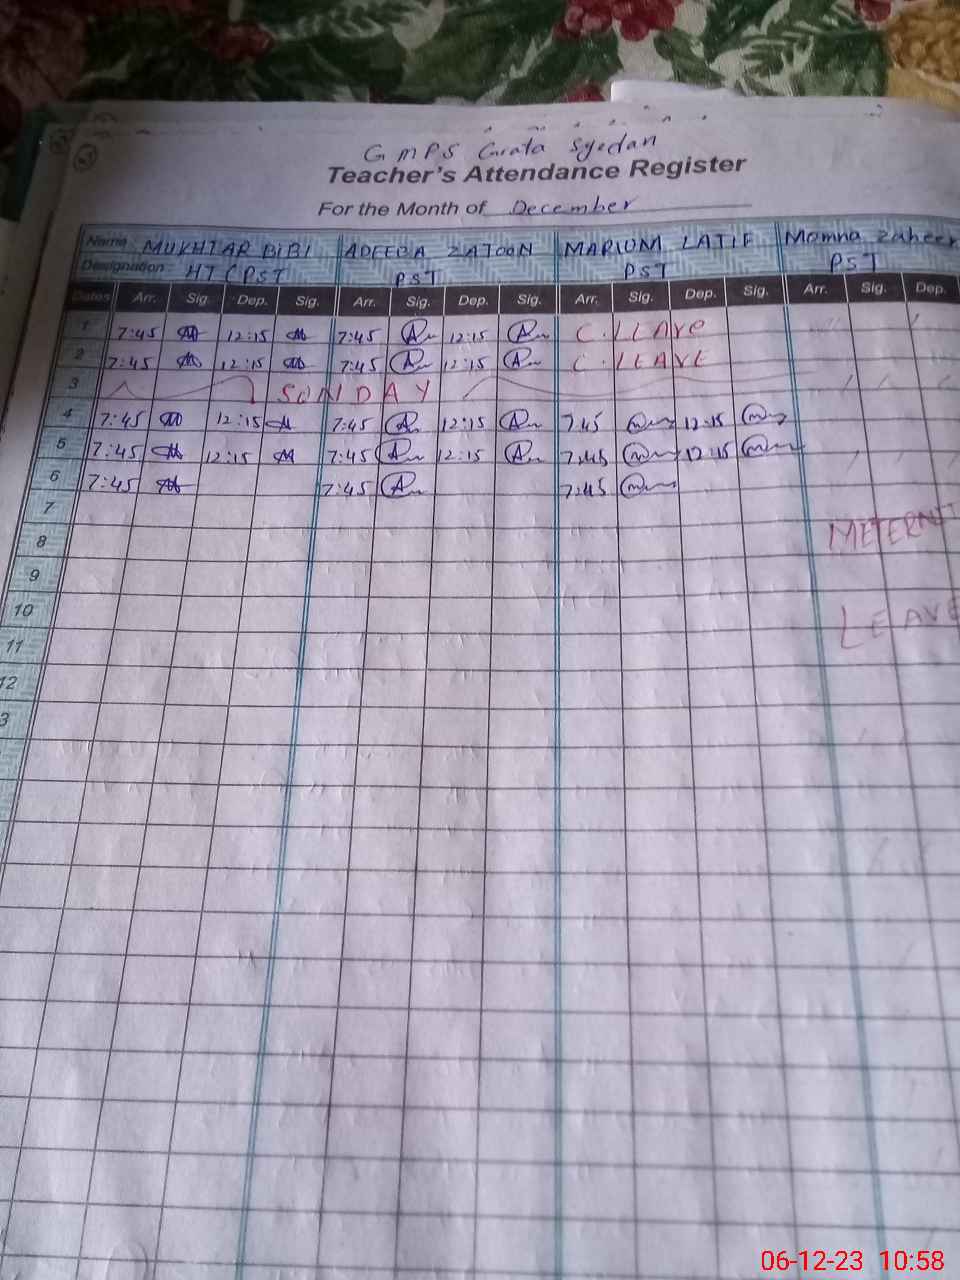 GMPS Gurata Syedan
Teacher's Attendance Register
For the Month of December
Name MUKHTAR BIBI ADEEBA ZATOON MARIUM LATIF Momna Zaheer
Designation HT (PST PST PST PST
Dates Arr. Sig. Dep. Sig. Arr. Sig. Dep. Sig. Arr. Sig. Dep. Sig. Arr. Sig. Dep.
1 7:45 12:15 7:45 12:15 C.LEAVE
2 7:45 12:15 7:45 12:15 C.LEAVE
3 SUNDAY
4 7:45 12:15 7:45 12:15 7:45 12:15
5 7:45 12:15 7:45 12:15 7:45 12:15
6 7:45 7:45 7:45
7
8 METERNIT
9
10 LEAVE
11
12
3
06-12-23 10:58